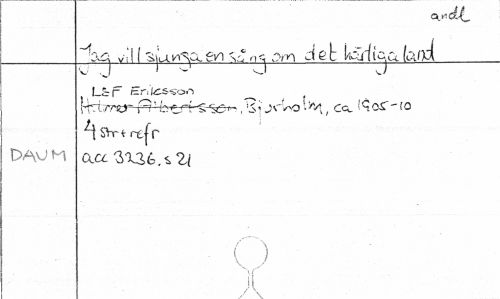 andl
Jag vill sjunga en sång om det härliga land
L&F Eriksson
Hilmer Albertsson, Bjurholm, ca 1905-10
4 str + refr
DAUM acc 3236, s 21